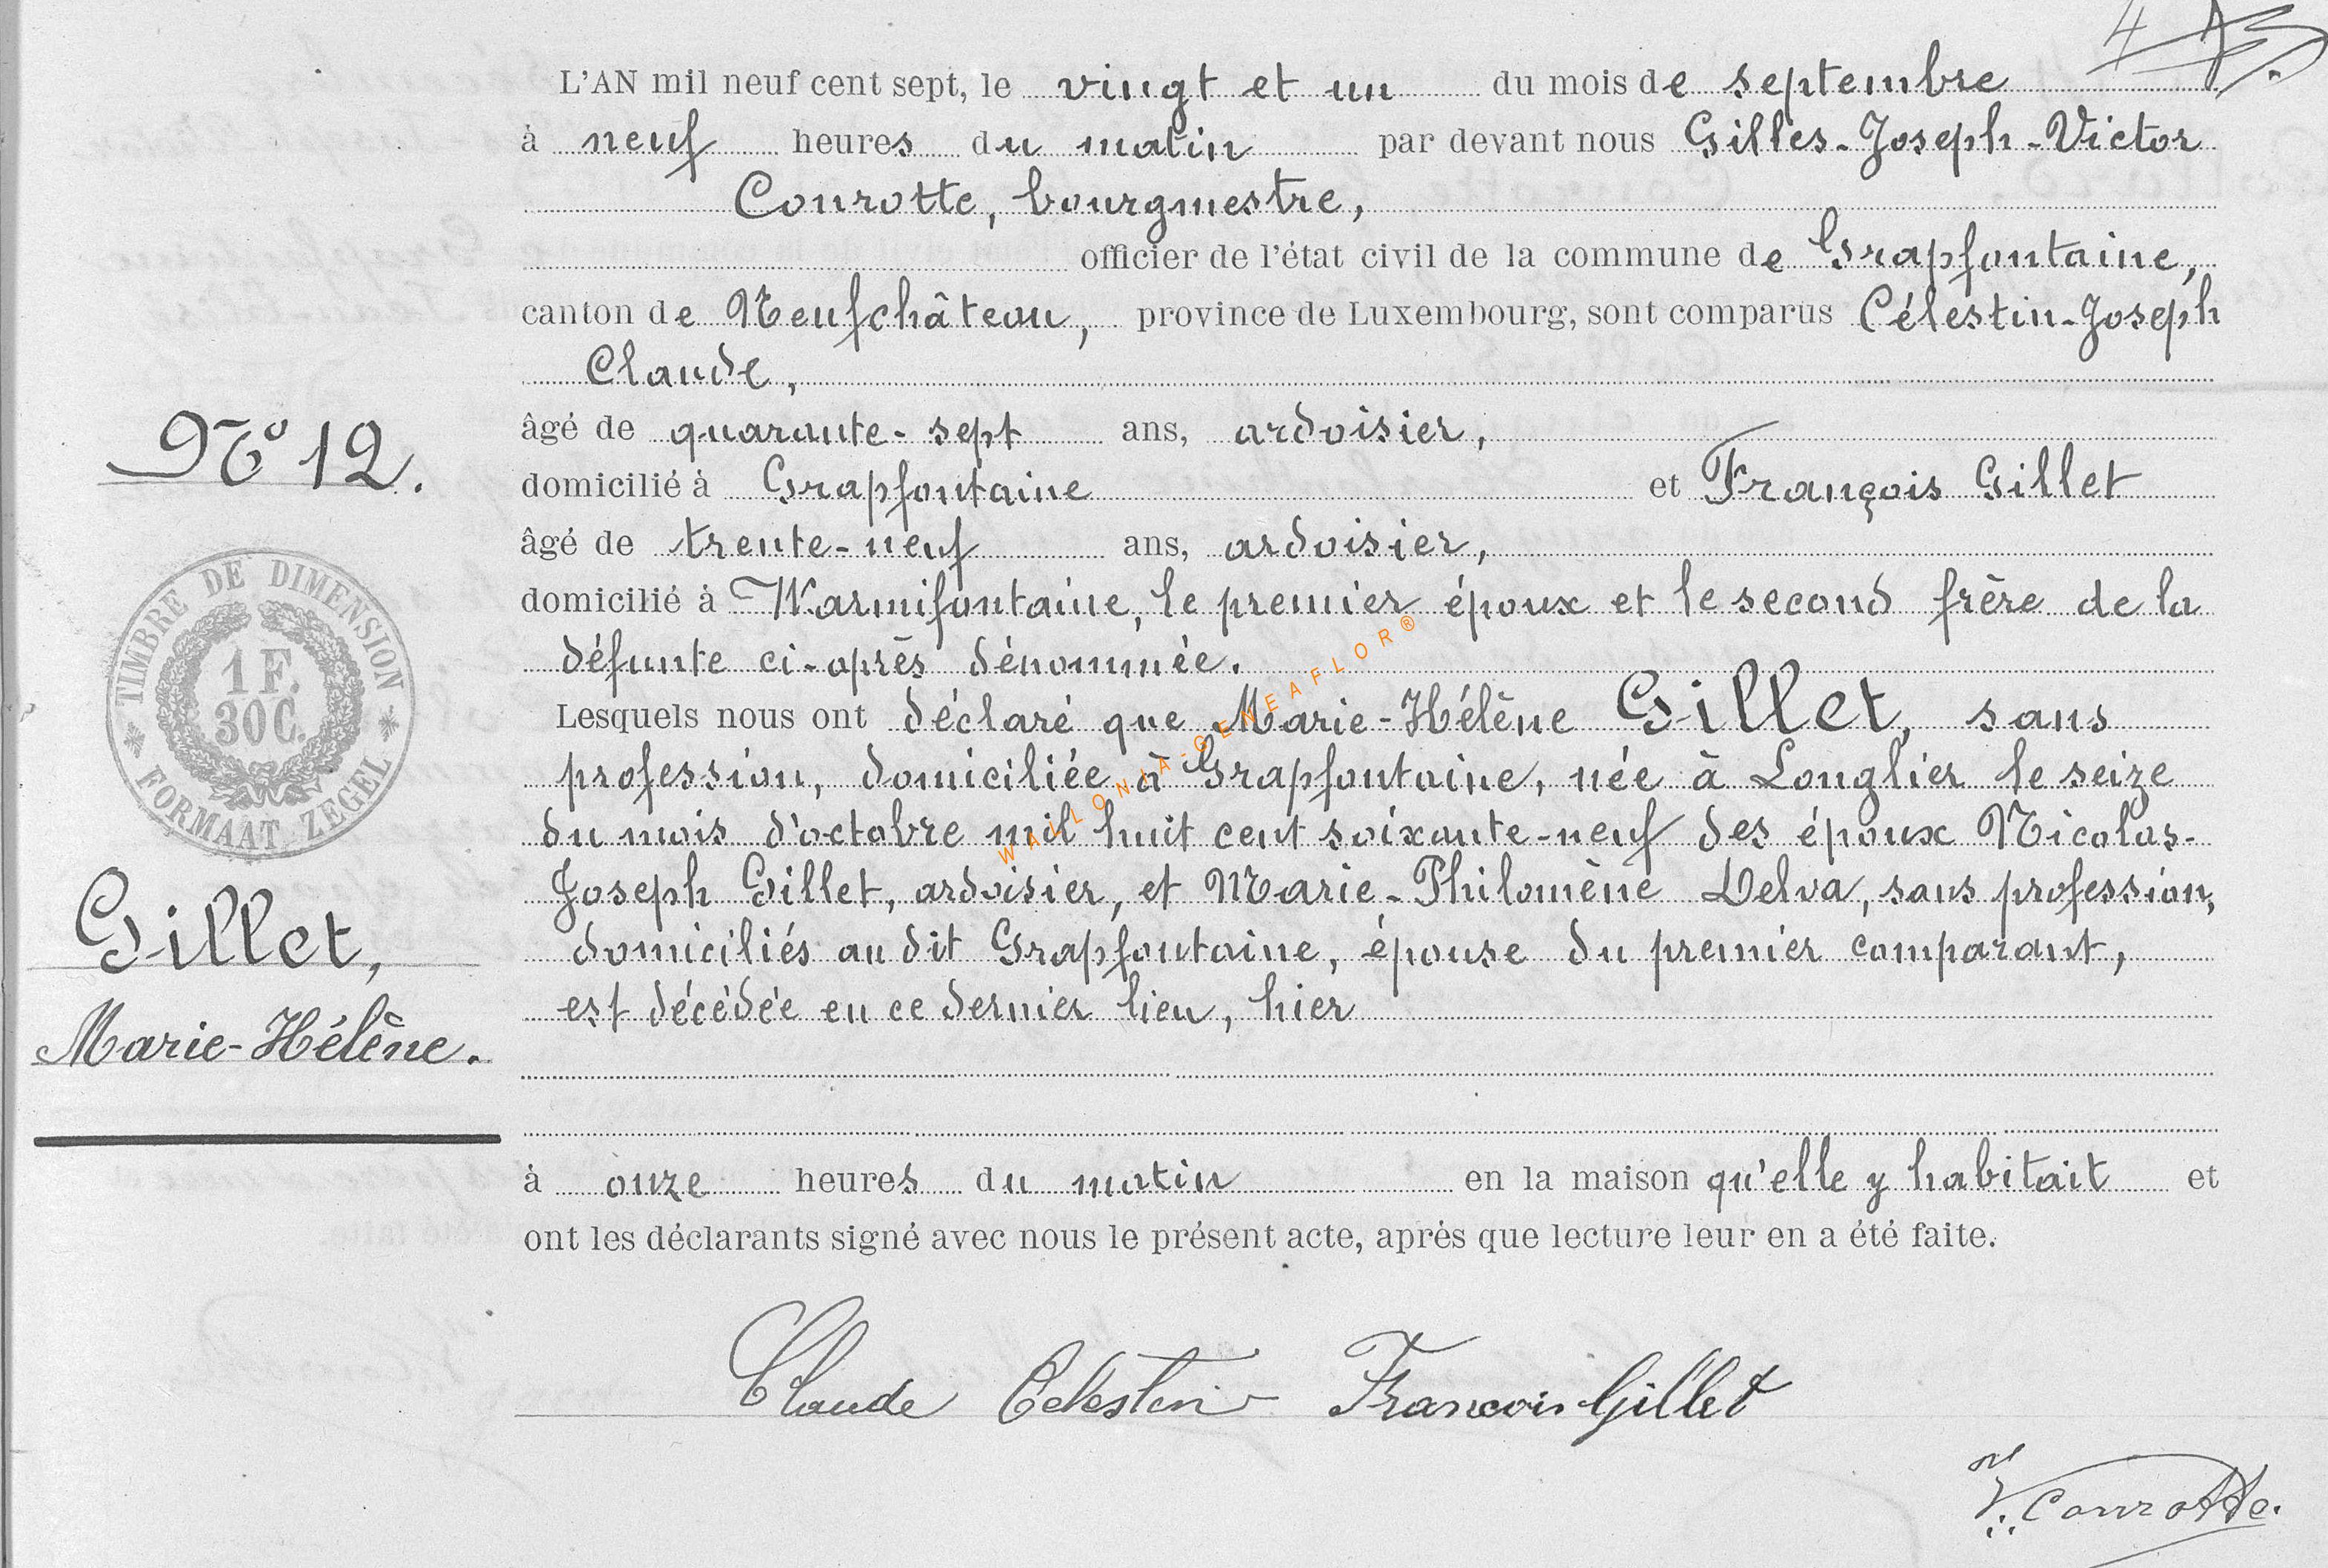 4
L'AN mil neuf cent sept, le vingt et un du mois de septembre
à neuf heures du matin par devant nous Gilles-Joseph-Victor
Conrotte, bourgmestre,
officier de l'état civil de la commune de Grapfontaine,
canton de Neufchâteau, province de Luxembourg, sont comparus Célestin-Joseph
Claude,
âgé de quarante-sept ans, ardoisier,
domicilié à Grapfontaine et François Gillet
âgé de trente-neuf ans, ardoisier,
domicilié à Warmifontaine, le premier époux et le second frère de la
défunte ci-après dénommée.
Lesquels nous ont déclaré que Marie-Hélène Gillet, sans
profession, domiciliée à Grapfontaine, née à Longlier le seize
du mois d'octobre mil huit cent soixante-neuf des époux Nicolas-
Joseph Gillet, ardoisier, et Marie-Philomène Delva, sans profession,
domiciliés au dit Grapfontaine, épouse du premier comparant,
est décédée en ce dernier lieu, hier
à onze heures du matin en la maison qu'elle y habitait et
ont les déclarants signé avec nous le présent acte, après que lecture leur en a été faite.
Claude Celestin François Gillet
V. Conrotte.
No 12.
TIMBRE DE DIMENSION
1 F.
30 C.
FORMAAT ZEGEL
Gillet,
Marie-Hélène.
WALLONIA-GENEAFLOR®